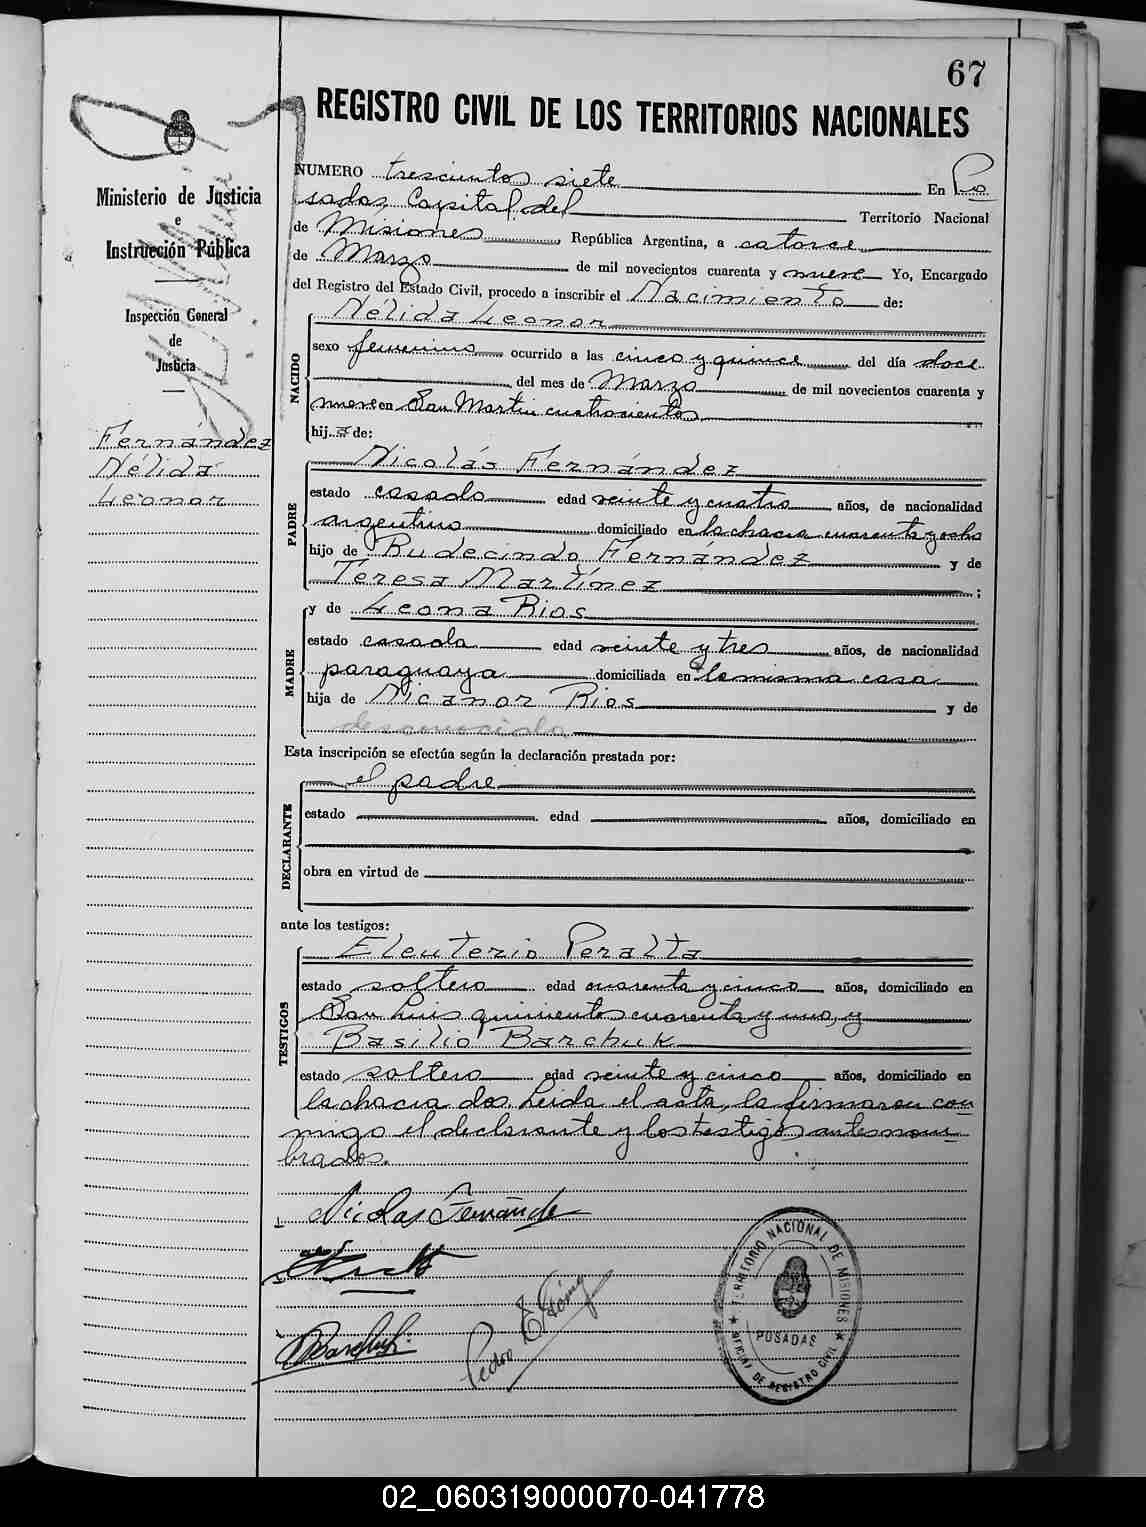 67
REGISTRO CIVIL DE LOS TERRITORIOS NACIONALES
Ministerio de Justicia
e
Instrucción Pública
Inspección General
de
Justicia
Fernández
Nélida
Leonor
NUMERO trescientos siete En Po
sadas, Capital del Territorio Nacional
de Misiones República Argentina, a catorce
de Marzo de mil novecientos cuarenta y nueve Yo, Encargado
del Registro del Estado Civil, procedo a inscribir el Nacimiento de:
NACIDO
Nélida Leonor
sexo femenino ocurrido a las cinco y quince del día doce
del mes de Marzo de mil novecientos cuarenta y
nueve en San Martin cuatrocientos
hija de:
PADRE
Nicolás Fernández
estado casado edad veinte y cuatro años, de nacionalidad
argentino domiciliado en la chacra cuarenta y ocho
hijo de Rudecindo Fernández y de
Teresa Martínez ;
MADRE
y de Leona Rios
estado casada edad veinte y tres años, de nacionalidad
paraguaya domiciliada en la misma casa
hija de Nicanor Rios y de
desconocida
Esta inscripción se efectúa según la declaración prestada por:
DECLARANTE
el padre
estado edad años, domiciliado en
obra en virtud de
ante los testigos:
TESTIGOS
Eleuterio Peralta
estado soltero edad cuarenta y cinco años, domiciliado en
San Luis quinientos cuarenta y uno, y
Basilio Barchuk
estado soltero edad veinte y cinco años, domiciliado en
la chacra dos. Leida el acta, la firmaron con
migo el declarante y los testigos antes nom
brados.
Nicolas Fernánde
Barchuk
Pedro E
TERRITORIO NACIONAL DE MISIONES
POSADAS
OFICINA DE REGISTRO CIVIL
02_060319000070-041778